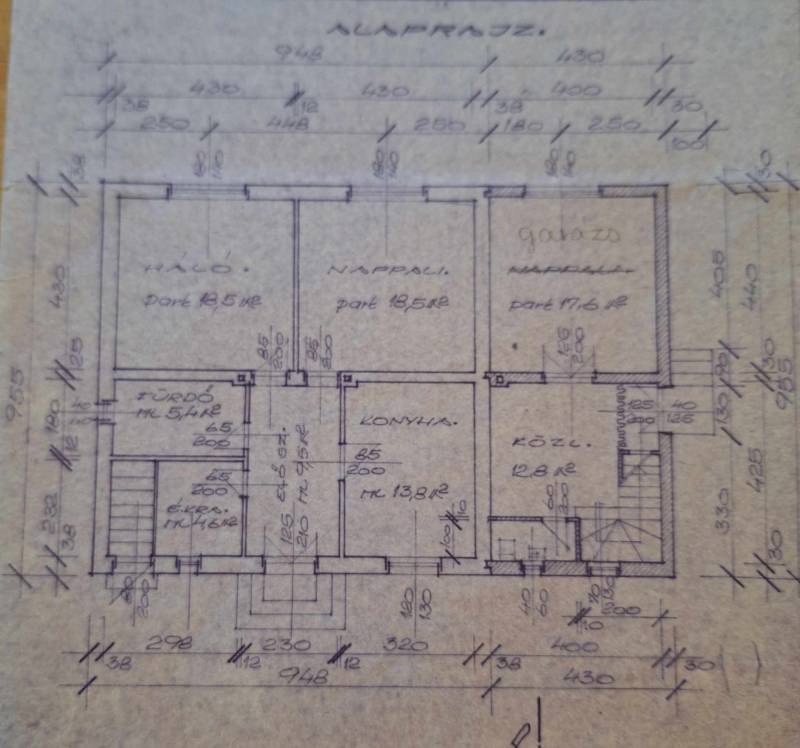 ALAPRAJZ.
948 430
430 430 400
38 12 38 30
250 448 250 180 250
100
180 140
180 140
180 140
38
30
garázs
HÁLÓ. NAPPALI. NAPPALI.
part 18,5 m² part 18,5 m² part 17,6 m²
430
405
440
85 200
85 200
200
25
90
30
955
955
FÜRDŐ
ml 5,4 m²
KONYHA.
125 200
40 125
180
130
65 200
ELŐSZ.
ml 9,5 m²
KÖZL.
12,8 m²
12
85 200
65 200
425
ml 13,8 m²
60 200
É.KRA.
ml 4,6 m²
232
330
100
10
38
125 210
30
200
120 130
40 60
200
10
298 230 320 400
38 12 12 38 30
948 430